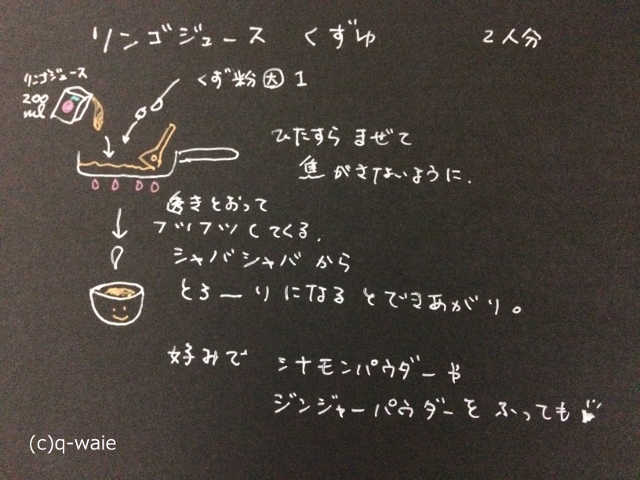 リンゴジュース くずゆ 2人分
リンゴジュース
200
ml
くず粉 大 1
ひたすら まぜて
焦がさないように.
透きとおって
フツフツしてくる.
シャバシャバ から
とろーりになると できあがり。
好みで シナモンパウダーや
ジンジャーパウダーを ふっても
(c)q-waie